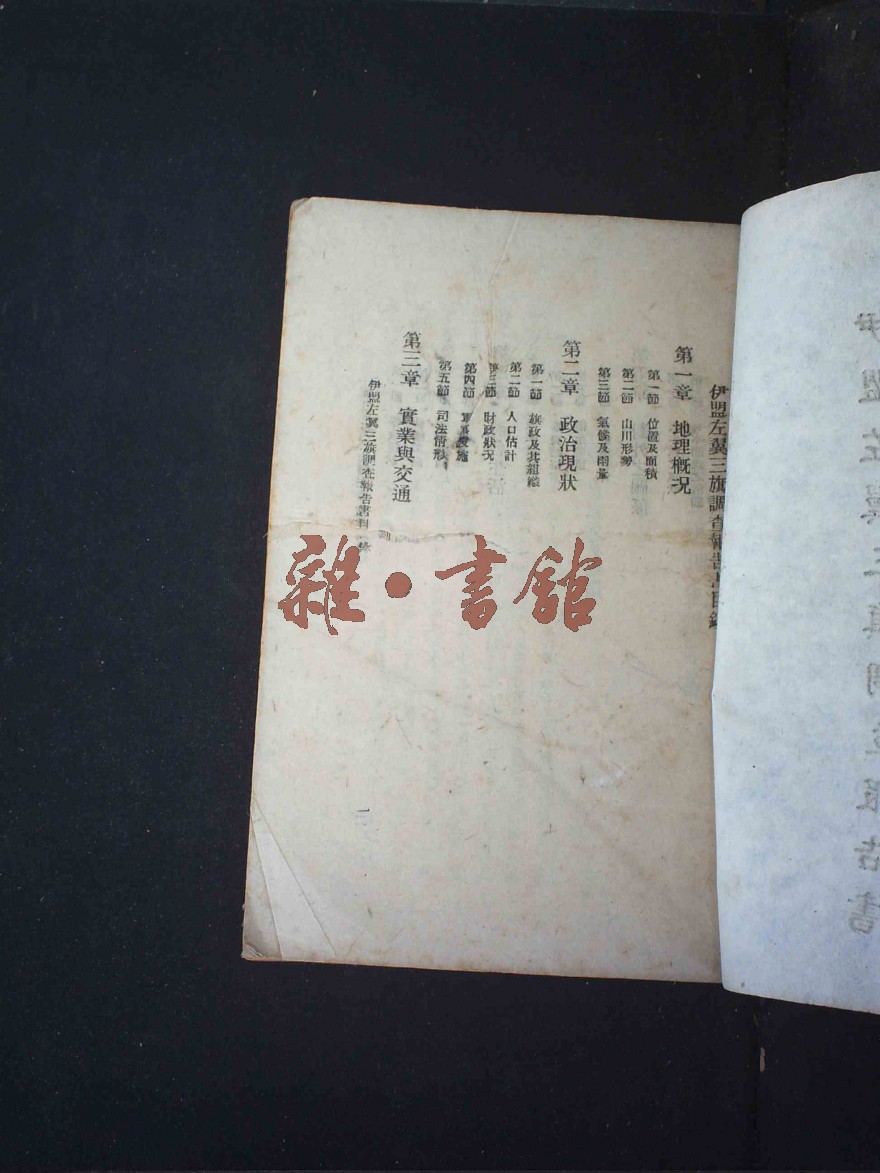 伊盟左翼三旗調查報告書目錄
第一章 地理概況
第一節 位置及面積
第二節 山川形勢
第三節 氣候及雨量
第二章 政治現狀
第一節 旗政及其組織
第二節 人口估計
第三節 財政狀況
第四節 軍事設施
第五節 司法情形
第三章 實業與交通
伊盟左翼三旗調查報告書目錄
一
雜·書館
伊盟左翼三旗調查報告書